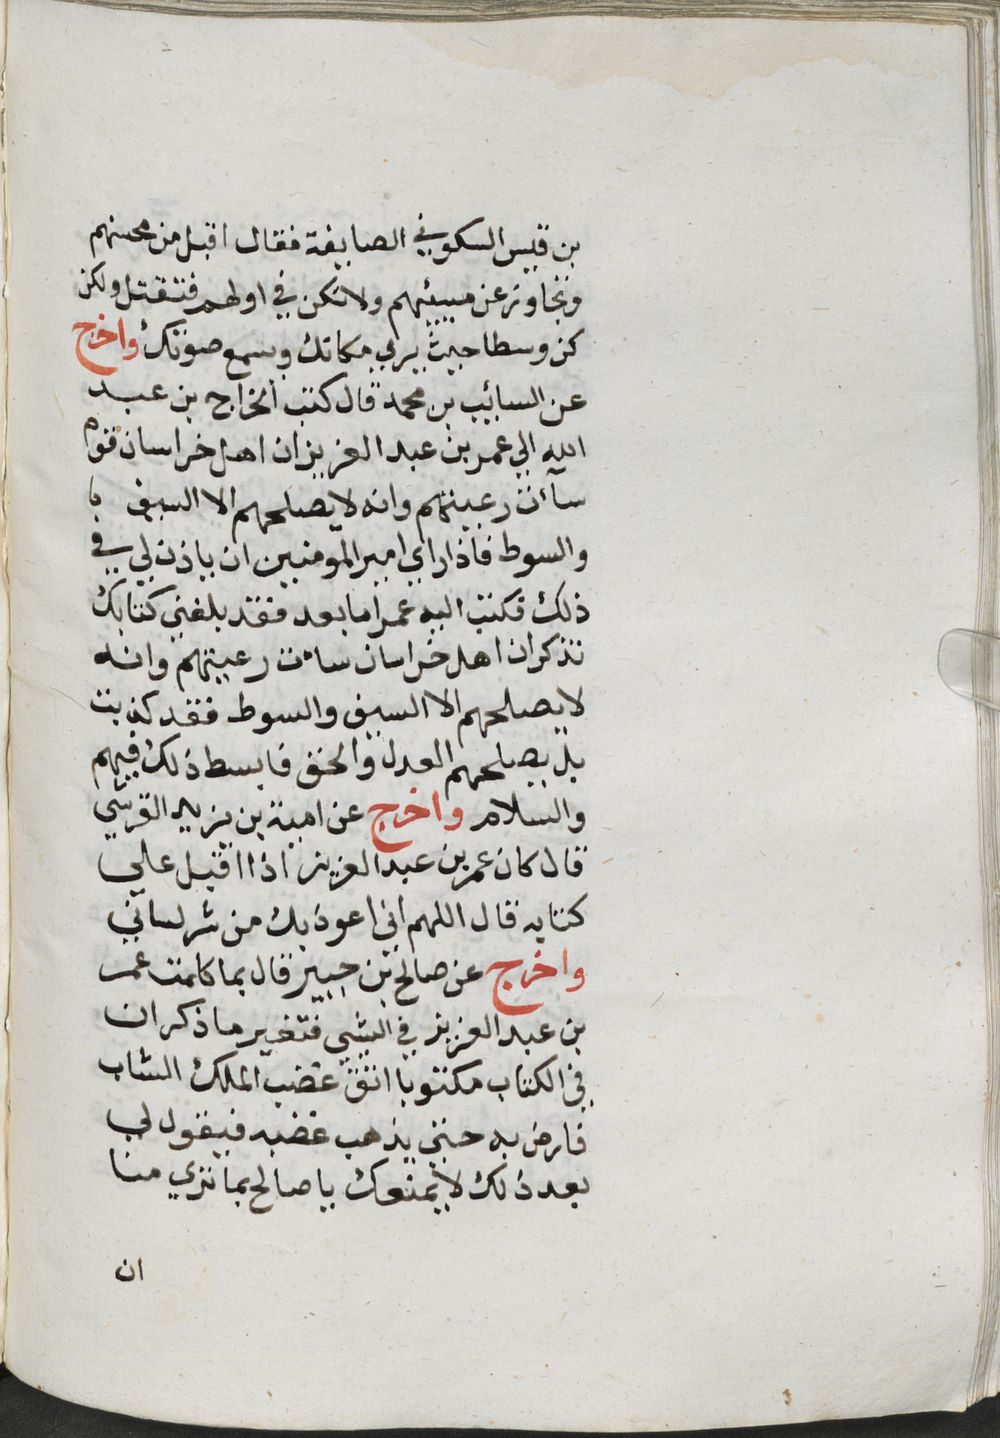 بن قيس السكوني الصايفة فقال اقبل من محسنهم
وتجاوز عن مسيئهم ولا تكن في اولهم فتقتل ولكن
كن وسطا حيث يري مكانك ويسمع صوتك واخرج
عن السائب بن محمد قال كتب الخراج بن عبد
الله الي عمر بن عبد العزيز ان اهل خراسان قوم
سآت رعيتهم وانه لا يصلحهم الا السيف
والسوط فاذا راي امير المومنين ان ياذن لي في
ذلك فكتب اليه عمر اما بعد فقد بلغني كتابك
تذكر ان اهل خراسان سات رعيتهم وانه
لا يصلحهم الا السيف والسوط فقد كذبت
بل يصلحهم العدل والحق فابسط ذلك فيهم
والسلام واخرج عن امية بن يزيد القرشي
قال كان عمر بن عبد العزيز اذا اقبل علي
كتابه قال اللهم اني اعوذ بك من شر لساني
واخرج عن صالح بن جبير قال بما كلمت عمر
بن عبد العزيز في الشي فتغير ما ذكر ان
في الكتاب مكتوبا اتق غضب الملك الشاب
فارض به حتي يذهب غضبه فيقول لي
بعد ذلك لا يمنعك يا صالح بما تري منا
ان